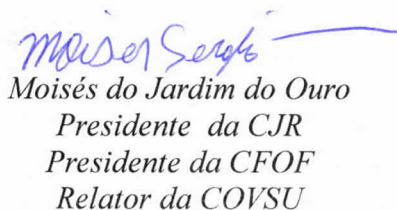 Moises Sergio
Moisés do Jardim do Ouro
Presidente da CJR
Presidente da CFOF
Relator da COVSU